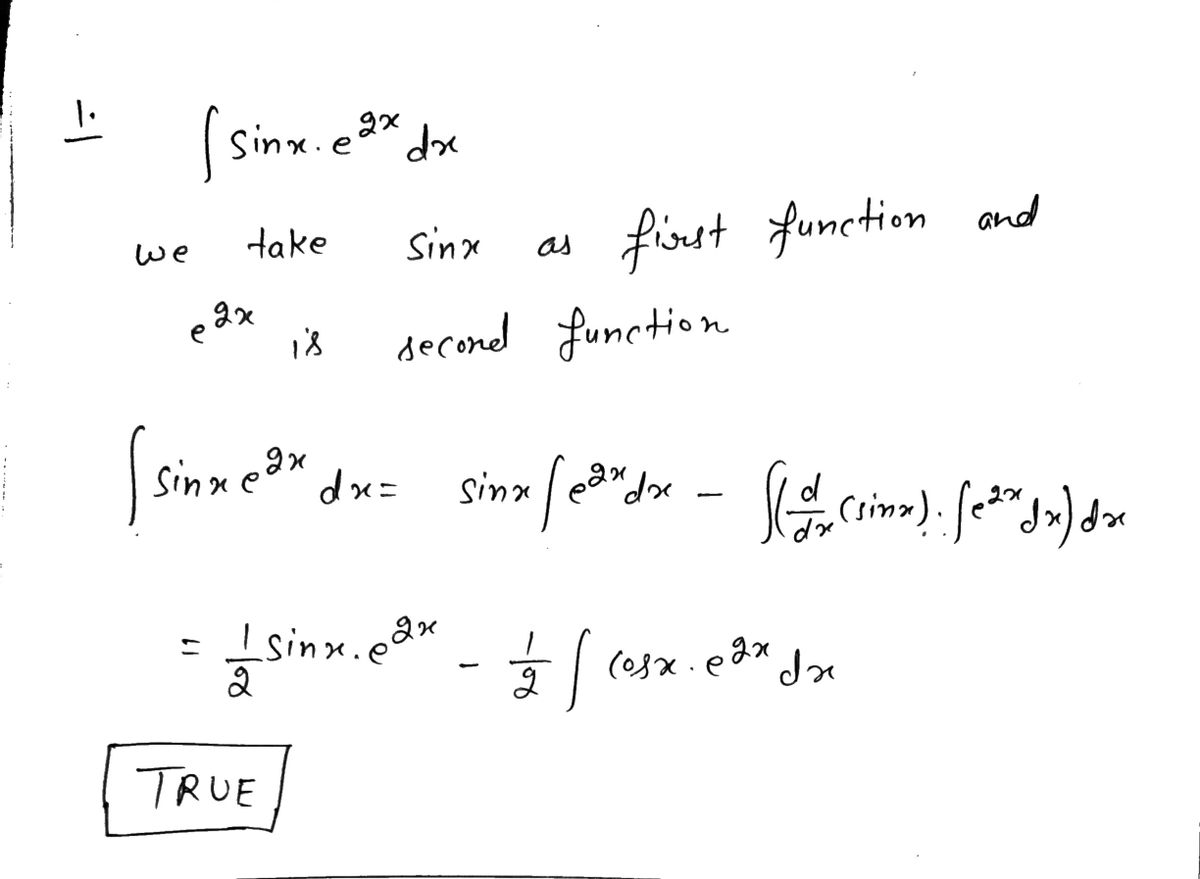 1. ∫ sinx. e^2x dx
we take sinx as first function and
e^2x is second function
∫ sinx e^2x dx = sinx ∫ e^2x dx - ∫( d/dx (sinx). ∫ e^2x dx) dx
= 1/2 sinx. e^2x - 1/2 ∫ cosx. e^2x dx
TRUE